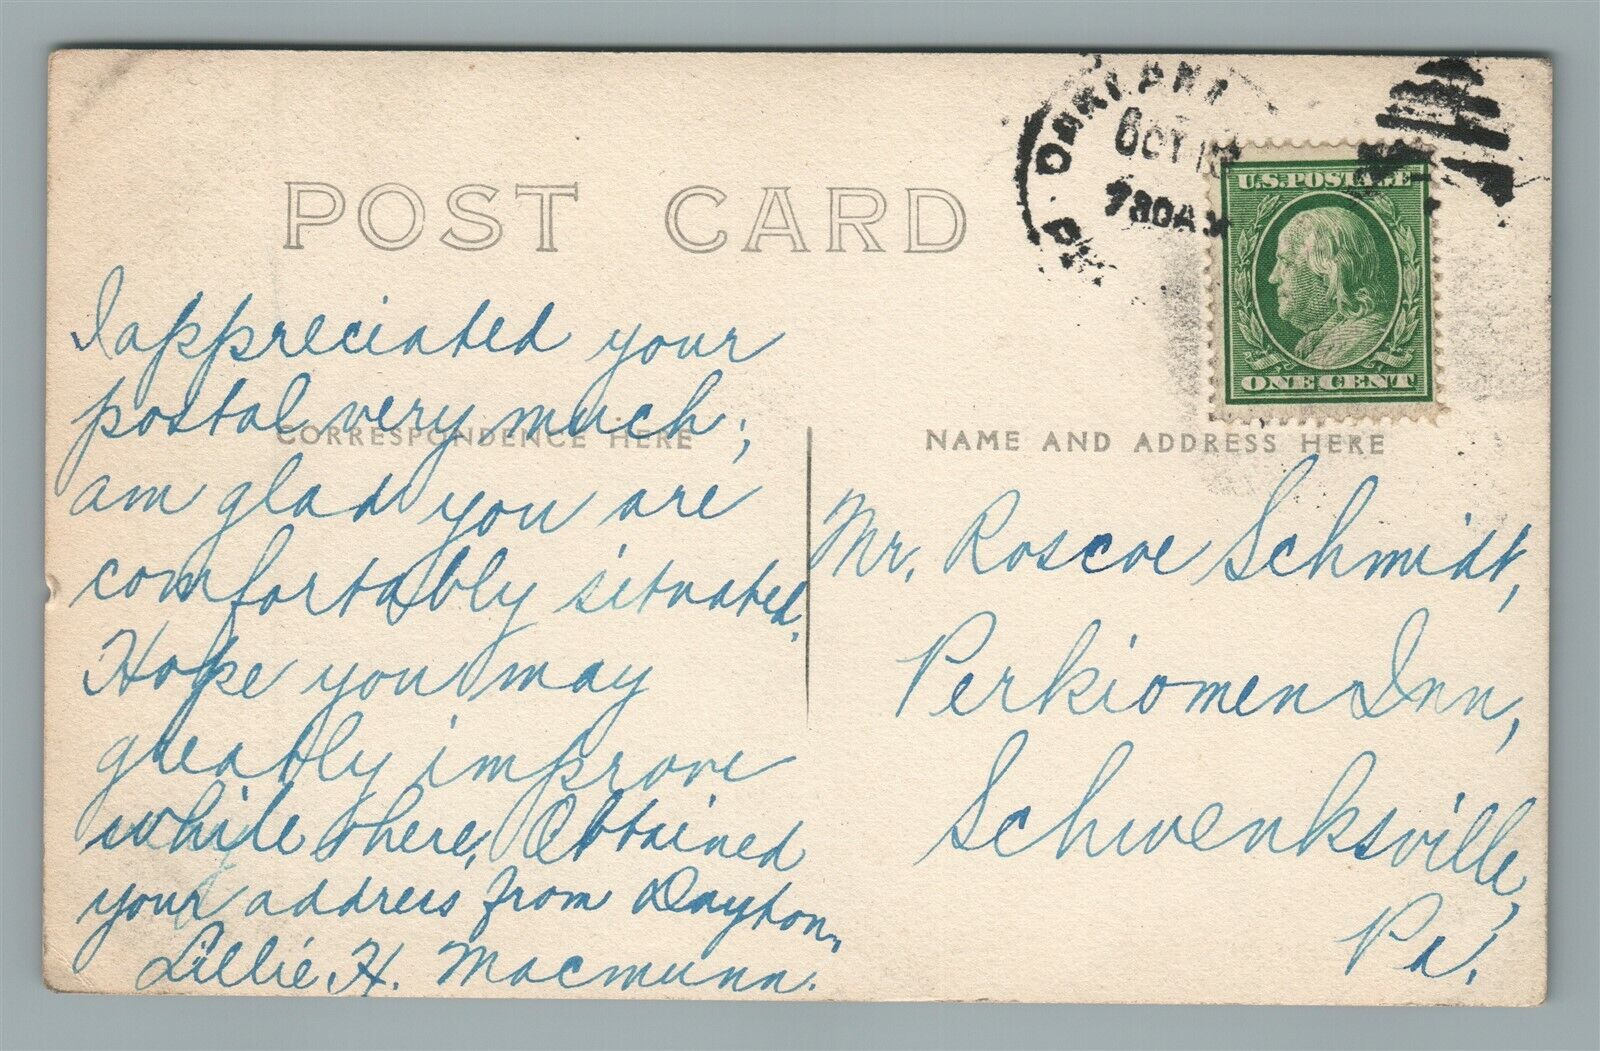 POST CARD
OAKLAND
OCT
730A
U.S. POSTAGE
ONE CENT
CORRESPONDENCE HERE
NAME AND ADDRESS HERE
I appreciated your
postal very much;
am glad you are
comfortably situated.
Hope you may
greatly improve
while there. Obtained
your address from Dayton.
Lillie H. Macmunn.
Mr. Roscoe Schmidt,
Perkiomen Inn,
Schwenksville,
Pa.